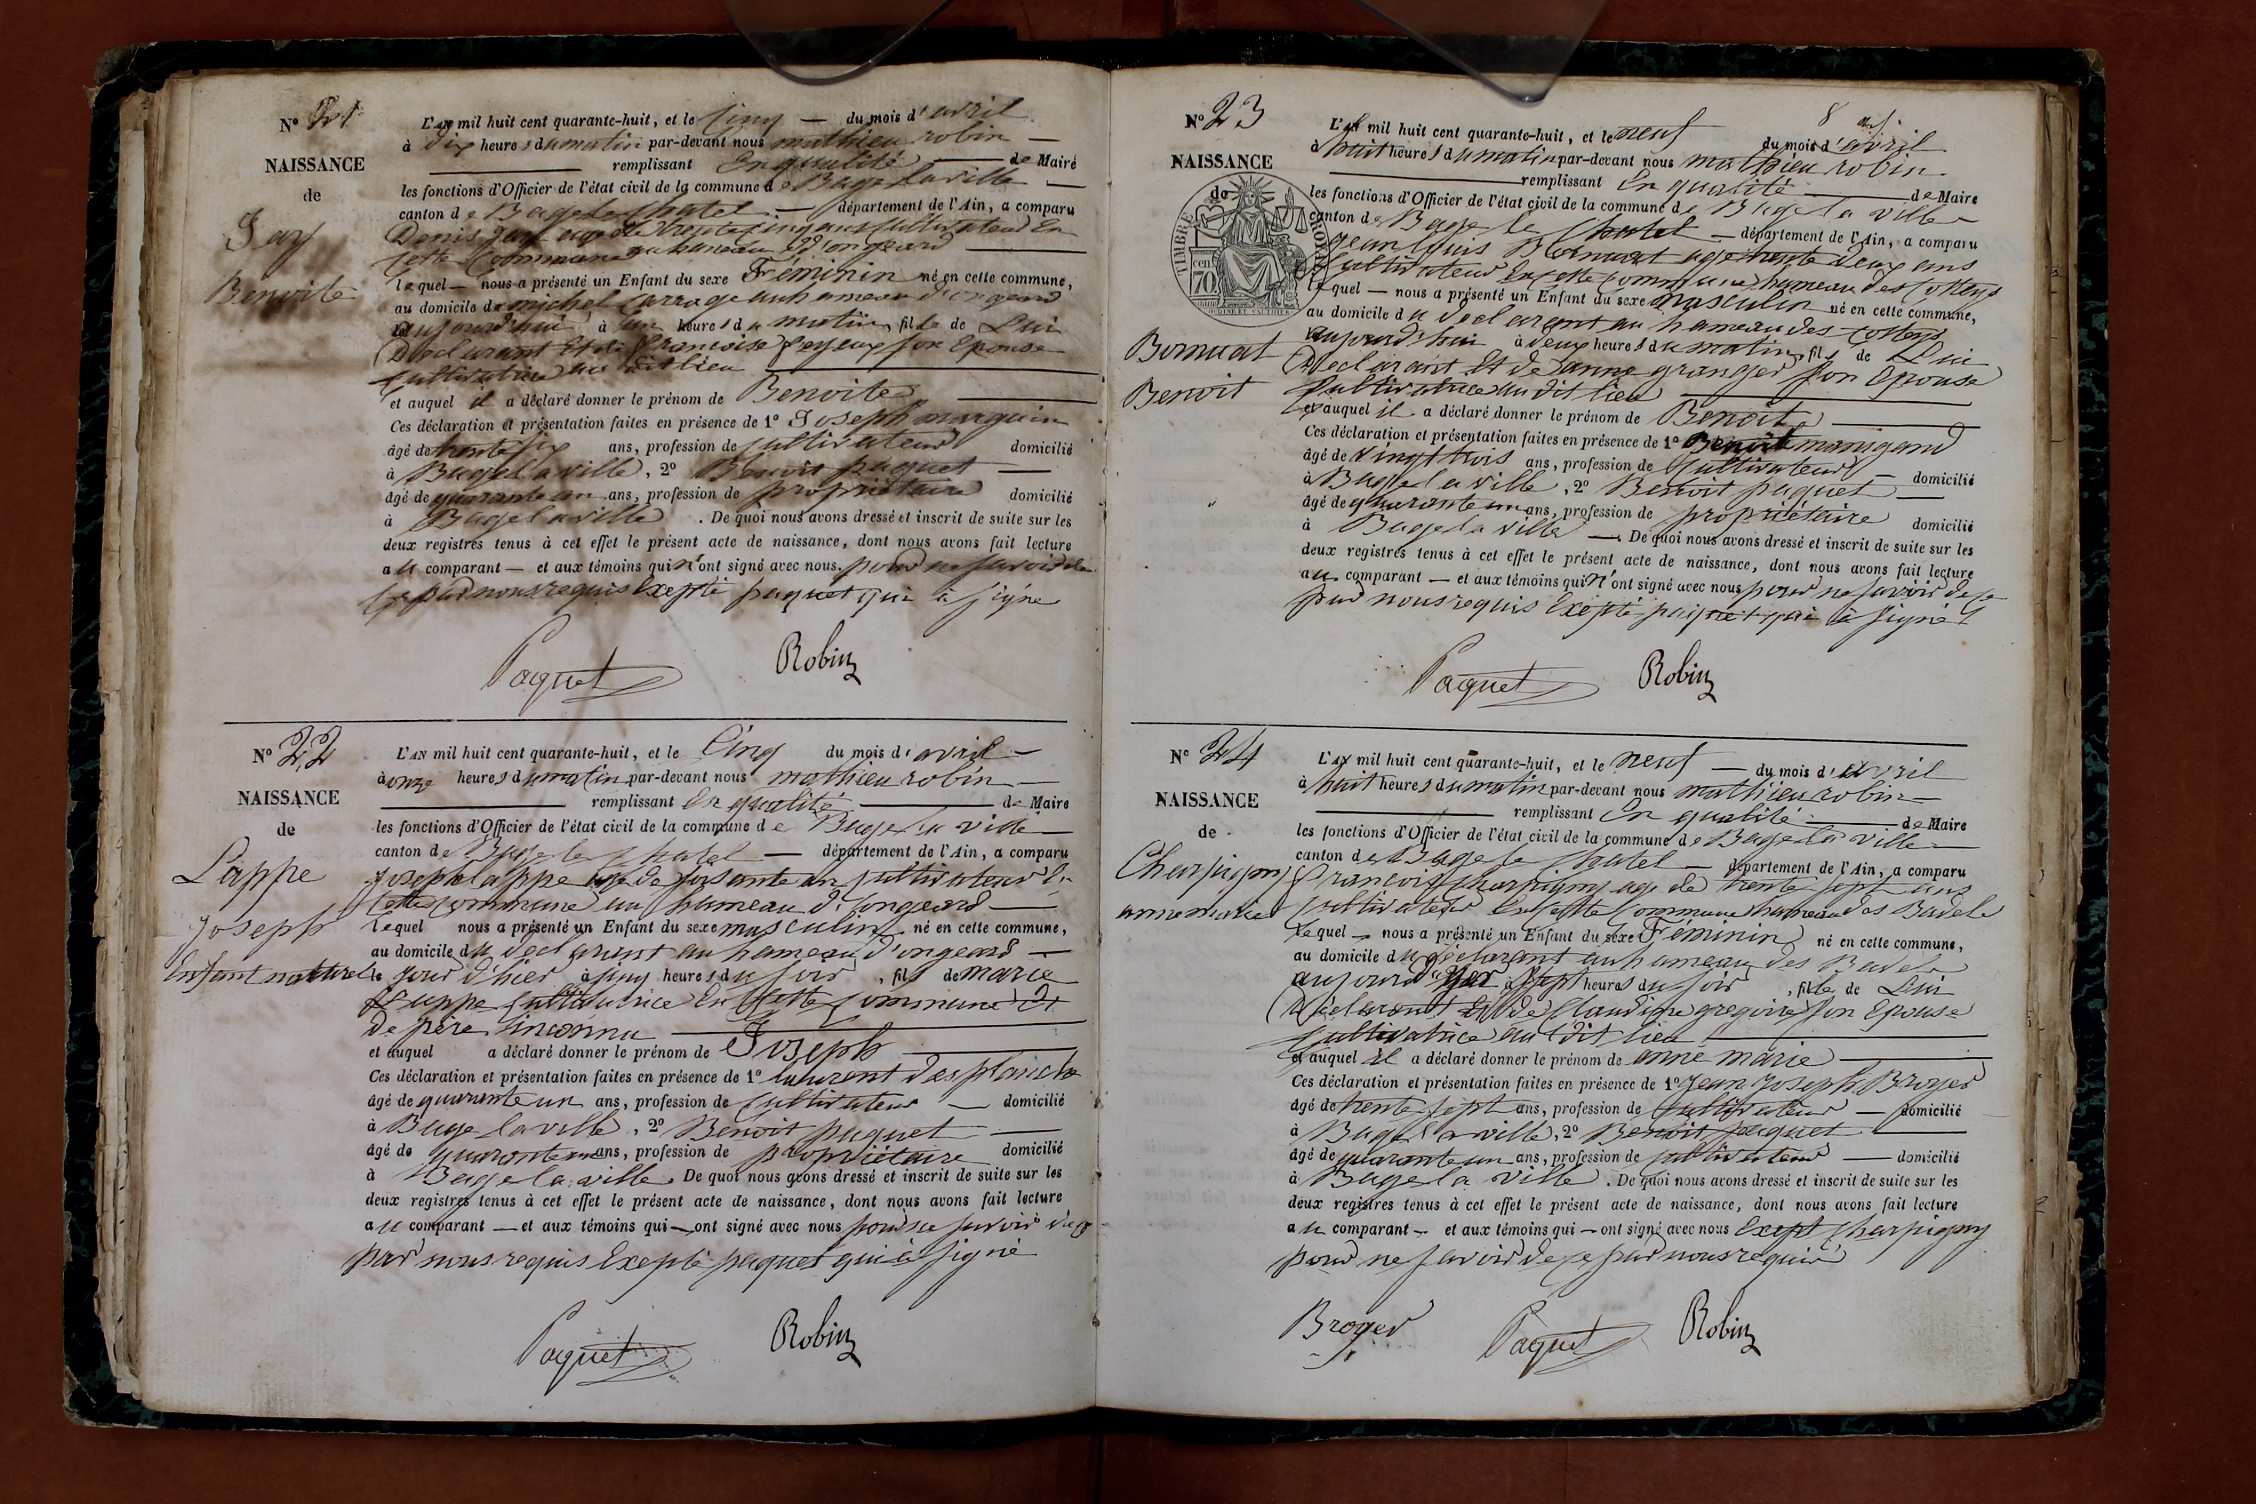 N° 21
NAISSANCE
de
Jay
Benoite
L'AN mil huit cent quarante-huit, et le Cinq — du mois d'avril
à dix heures du matin par-devant nous mathieu robin —
remplissant En qualité — de Maire
les fonctions d'Officier de l'état civil de la commune de Bage la ville —
canton de Bage le Chatel — département de l'Ain, a comparu
Denis Jay age de trente cinq ans Cultivateur En
Cette Commune au hameau d'ongeard
lequel — nous a présenté un Enfant du sexe Féminin né en cette commune,
au domicile de michel au hameau d'ongeard
aujourd'hui à heures du matin, fille de Lui
Déclarant Et de francoise son Epouse
Cultivatrice au dit lieu
et auquel il a déclaré donner le prénom de Benoite
Ces déclaration et présentation faites en présence de 1° Joseph
âgé de trente six ans, profession de Cultivateur domicilié
à Bage la ville, 2° Benoit paquet —
âgé de quarante un ans, profession de propriétaire domicilié
à Bage la ville. De quoi nous avons dressé et inscrit de suite sur les
deux registres tenus à cet effet le présent acte de naissance, dont nous avons fait lecture
au comparant — et aux témoins qui n'ont signé avec nous pour ne savoir de
Ce par nous requis Exepté paquet qui à signé
Paquet Robin
N° 22
NAISSANCE
de
Lappe
Joseph
Enfant naturel
L'AN mil huit cent quarante-huit, et le Cinq du mois d'avril —
à onze heures du matin par-devant nous mathieu robin —
remplissant En qualité — de Maire
les fonctions d'Officier de l'état civil de la commune de Bage la ville —
canton de Bage le Chatel — département de l'Ain, a comparu
Joseph lappe age de soisante un Cultivateur En
Cette Commune au hameau d'ongeard —
lequel nous a présenté un Enfant du sexe masculin né en cette commune,
au domicile du declarant au hameau d'ongeard —
le jour d'hier à cinq heures du soir, fils de marie
Lappe Cultivatrice En Cette Commune Et
de père inconnu
et auquel a déclaré donner le prénom de Joseph
Ces déclaration et présentation faites en présence de 1° laurent desplanche
âgé de quarante un ans, profession de Cultivateur — domicilié
à Bage la ville, 2° Benoit paquet —
âgé de quarante un ans, profession de propriétaire domicilié
à Bage la ville. De quoi nous avons dressé et inscrit de suite sur les
deux registres tenus à cet effet le présent acte de naissance, dont nous avons fait lecture
au comparant — et aux témoins qui — ont signé avec nous pour ne savoir de ce
par nous requis Exepté paquet qui à signé
Paquet Robin
N° 23
NAISSANCE
de
TIMBRE ROYAL
cen 70
Bornuat
Benoit
L'AN mil huit cent quarante-huit, et le neuf du mois d'avril
à huit heures du matin par-devant nous mathieu robin
remplissant En qualité — de Maire
les fonctions d'Officier de l'état civil de la commune de Bage la ville
canton de Bage le Chatel — département de l'Ain, a comparu
jean louis Bornuat age trente deux ans
Cultivateur En Cette Commune hameau des Cottens
lequel — nous a présenté un Enfant du sexe masculin né en cette commune,
au domicile du declarant au hameau des Cottens
aujourd'hui à deux heures du matin, fils de Lui
Declarant Et de anne granger son Epouse
Cultivatrice au dit lieu
et auquel il a déclaré donner le prénom de Benoit
Ces déclaration et présentation faites en présence de 1° Benoit manigand
âgé de vingt trois ans, profession de Cultivateur — domicilié
à Bage la ville, 2° Benoit paquet —
âgé de quarante un ans, profession de propriétaire domicilié
à Bage la ville — De quoi nous avons dressé et inscrit de suite sur les
deux registres tenus à cet effet le présent acte de naissance, dont nous avons fait lecture
au comparant — et aux témoins qui n'ont signé avec nous pour ne savoir de ce
par nous requis Exepté paquet qui à signé
Paquet Robin
N° 24
NAISSANCE
de
Charpigny
anne marie
L'AN mil huit cent quarante-huit, et le neuf — du mois d'avril
à huit heures du matin par-devant nous mathieu robin —
remplissant En qualité — de Maire
les fonctions d'Officier de l'état civil de la commune de Bage la ville —
canton de Bage le Chatel — département de l'Ain, a comparu
Francois Charpigny age de trente sept ans
Cultivateur En Cette Commune hameau des Badel
lequel — nous a présenté un Enfant du sexe Féminin né en cette commune,
au domicile du déclarant au hameau des Badel
à sept heures du soir, fille de Lui
Déclarant Et de Claudine gregoire son Epouse
Cultivatrice au dit lieu
et auquel il a déclaré donner le prénom de anne marie
Ces déclaration et présentation faites en présence de 1° jean joseph Broyer
âgé de trente sept ans, profession de Cultivateur — domicilié
à Bage la ville, 2° Benoit paquet —
âgé de quarante un ans, profession de Cultivateur — domicilié
à Bage la ville. De quoi nous avons dressé et inscrit de suite sur les
deux registres tenus à cet effet le présent acte de naissance, dont nous avons fait lecture
au comparant — et aux témoins qui — ont signé avec nous Exept Charpigny
pour ne savoir de ce par nous requis
Broyer Paquet Robin